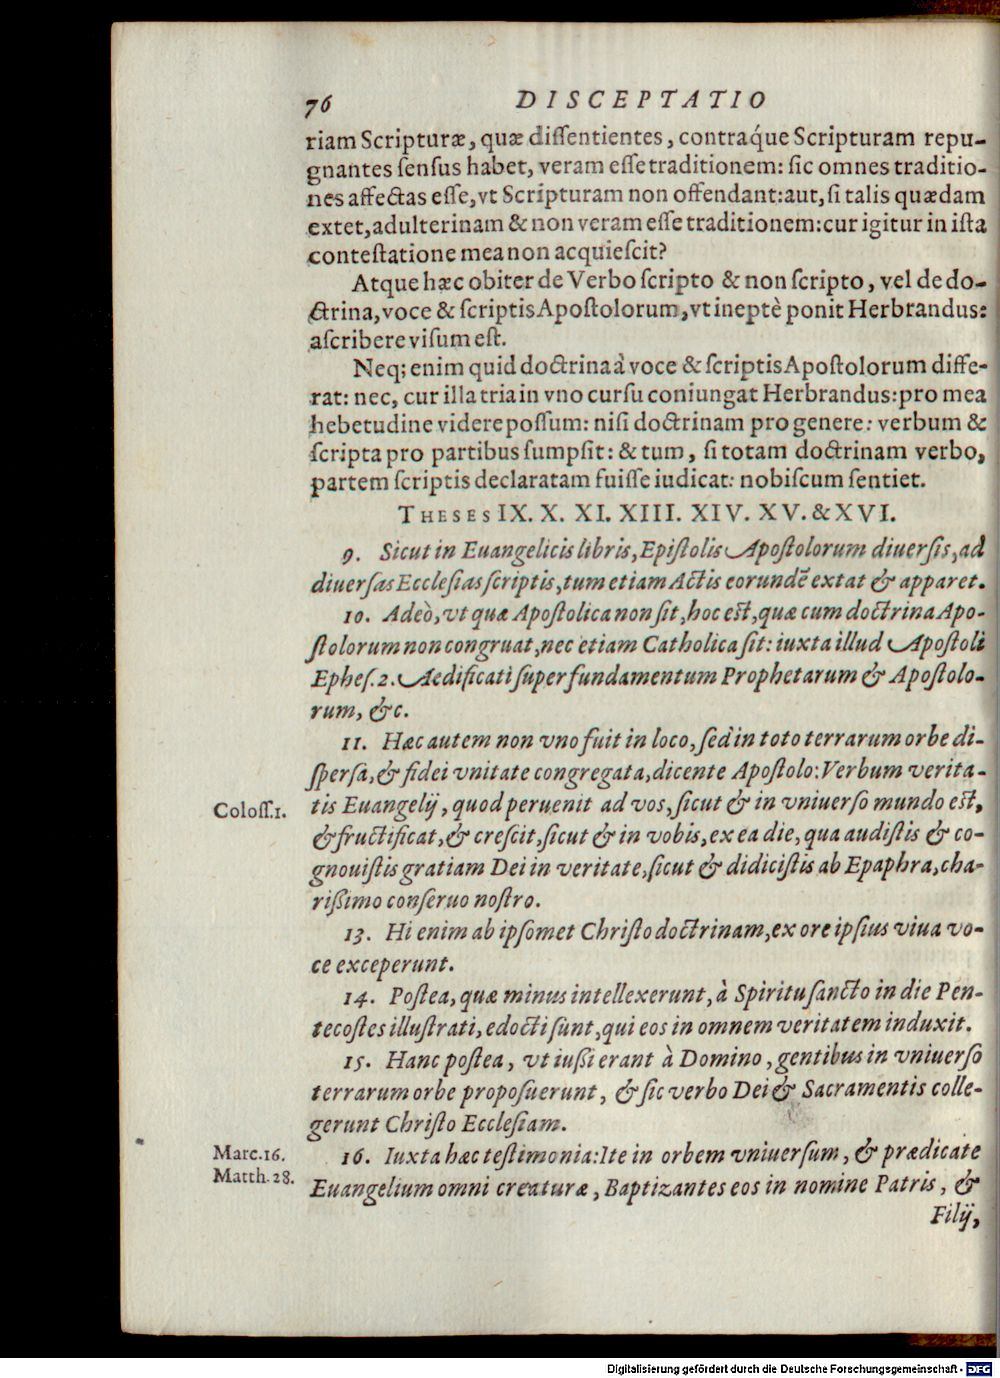 76 DISCEPTATIO
riam Scripturæ, quæ dissentientes, contraq́ue Scripturam repu-
gnantes sensus habet, veram esse traditionem: sic omnes traditio-
nes affectas esse, vt Scripturam non offendant: aut, si talis quædam
extet, adulterinam & non veram esse traditionem: cur igitur in ista
contestatione mea non acquiescit?
Atque hæc obiter de Verbo scripto & non scripto, vel de do-
ctrina, voce & scriptis Apostolorum, vt ineptè ponit Herbrandus:
ascribere visum est.
Neq; enim quid doctrina à voce & scriptis Apostolorum diffe-
rat: nec, cur illa tria in vno cursu coniungat Herbrandus: pro mea
hebetudine videre possum: nisi doctrinam pro genere: verbum &
scripta pro partibus sumpsit: & tum, si totam doctrinam verbo,
partem scriptis declaratam fuisse iudicat: nobiscum sentiet.
THESES IX. X. XI. XIII. XIV. XV. & XVI.
9. Sicut in Euangelicis libris, Epistolis Apostolorum diuersis, ad
diuersas Ecclesias scriptis, tum etiam Actis eorundẽ extat & apparet.
10. Adeò, vt quæ Apostolica non sit, hoc est, quæ cum doctrina Apo-
stolorum non congruat, nec etiam Catholica sit: iuxta illud Apostoli
Ephes. 2. Aedificati super fundamentum Prophetarum & Apostolo-
rum, &c.
11. Hæc autem non vno fuit in loco, sed in toto terrarum orbe di-
spersa, & fidei vnitate congregata, dicente Apostolo: Verbum verita-
Coloss. 1. tis Euangelij, quod peruenit ad vos, sicut & in vniuerso mundo est,
& fructificat, & crescit, sicut & in vobis, ex ea die, qua audistis & co-
gnouistis gratiam Dei in veritate, sicut & didicistis ab Epaphra, cha-
rißimo conseruo nostro.
13. Hi enim ab ipsomet Christo doctrinam, ex ore ipsius viua vo-
ce exceperunt.
14. Postea, quæ minus intellexerunt, à Spiritu sancto in die Pen-
tecostes illustrati, edocti sunt, qui eos in omnem veritatem induxit.
15. Hanc postea, vt iußi erant à Domino, gentibus in vniuerso
terrarum orbe proposuerunt, & sic verbo Dei & Sacramentis colle-
gerunt Christo Ecclesiam.
Marc. 16. 16. Iuxta hæc testimonia: Ite in orbem vniuersum, & prædicate
Matth. 28. Euangelium omni creaturæ, Baptizantes eos in nomine Patris, &
Filij,
Digitalisierung gefördert durch die Deutsche Forschungsgemeinschaft - DFG